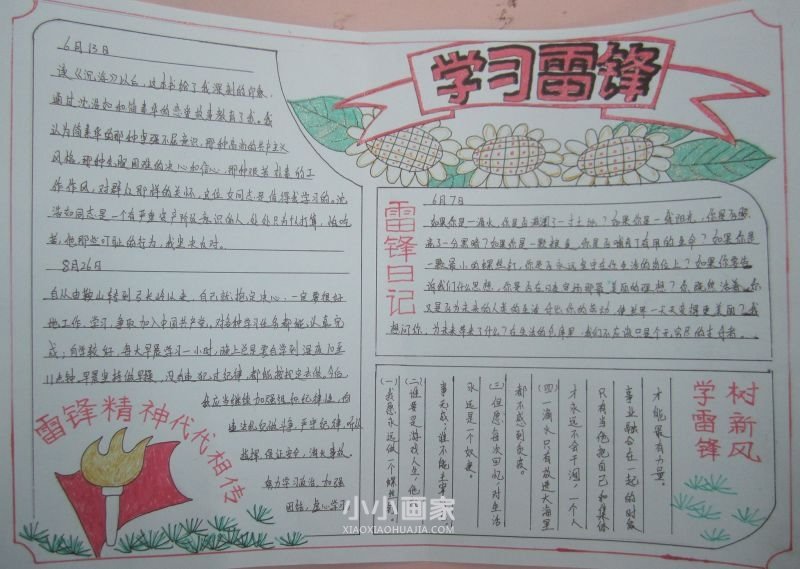 学习雷锋
6月13日
读《沉浮》以后，这本书给了我深刻的印象，
通过沈浩如和简素华的恋爱故事教育了我。我
认为简素华的那种坚强不屈意识，那种高尚的共产主义
风格，那种克服困难的决心和信心，那种艰苦朴素的工
作作风，对群众那样的关怀，这位女同志是值得我学习的。沈
浩如同志是一个有严重资产阶级意识的人，处处只为个人打算，怕吃
苦，他那些可耻的行为，我坚决反对。
8月26日
自从由鞍山转到弓长岭以来，自己就抱定决心：一定要很好
地工作，学习，争取加入中国共产党，对各种学习任务都能认真完
成；向学较好，每天早晨学习一小时，晚上总是要自学到深夜10至
11点钟。早晨坚持做早操，没有违犯过纪律，都能按规定去做。今后
我应当继续加强组织纪律性，向
违法乱纪做斗争，严守纪律，听从
指挥，保证安全，消灭事故。
努力学习政治，加强
团结，虚心学习
雷锋精神代代相传
雷锋日记
6月7日
如果你是一滴水，你是否滋润了一寸土地？如果你是一线阳光，你是否照
亮了一分黑暗？如果你是一颗粮食，你是否哺育了有用的生命？如果你是
一颗最小的螺丝钉，你是否永远坚守在你生活的岗位上？如果你要告
诉我们什么思想，你是否在日夜宣扬那最美丽的理想？你既然活着，你
又是否为未来的人类的生活付出你的劳动，使世界一天天变得更美丽？我
想问你，为未来带来了什么？在生活的仓库里，我们不应该只是个无穷尽的支付者。
树新风
学雷锋
才能最有力量。
事业融合在一起的时候
只有当他把自己和集体
才永远不会干涸，一个人
(四)一滴水只有放进大海里
都不感到负疚。
(三)但愿每次回忆，对生活
永远是一个奴隶。
事无成；谁不能主宰
(二)谁要是游戏人生，他
(一)我愿永远做一个螺丝钉。
小小画家
XIAOXIAOHUAJIA.COM